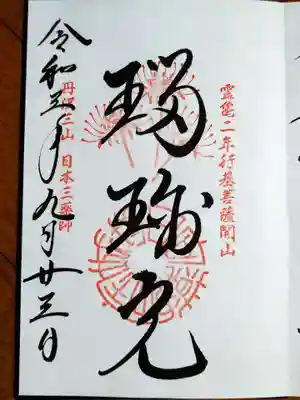 靈亀二年行基菩薩開山
瑠璃光
丹沢三山 日本三薬師
令和三年九月廿三日